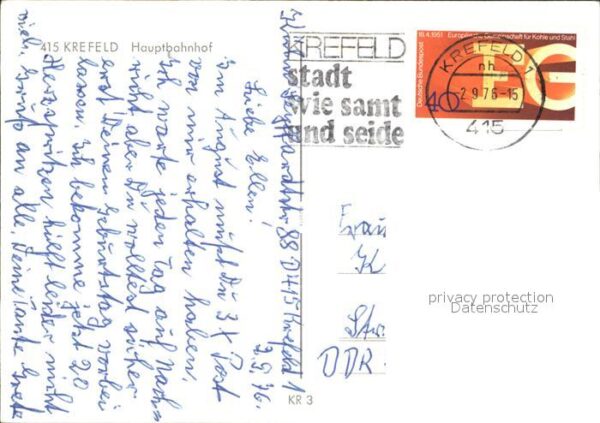 415 KREFELD Hauptbahnhof
KREFELD
stadt
wie samt
und seide
18.4.1951 Europäische Gemeinschaft für Kohle und Stahl
Deutsche Bundespost
40
KREFELD 1
nh
-2.9.76-15
415
88 D415 Krefeld 1
2.9.76.
Liebe Ellen!
Im August mußt Du 3 x Post
von mir erhalten haben.
Ich warte jeden Tag auf Nach-
richt aber Du wolltest sicher
erst Deinen Geburtstag vorbei
lassen. Ich bekomme jetzt 20
Herzspritzen hilft leider nicht
viel. Gruß an alle, Deine Tante Grete
Frau
K
Str.
DDR
privacy protection
Datenschutz
KR 3